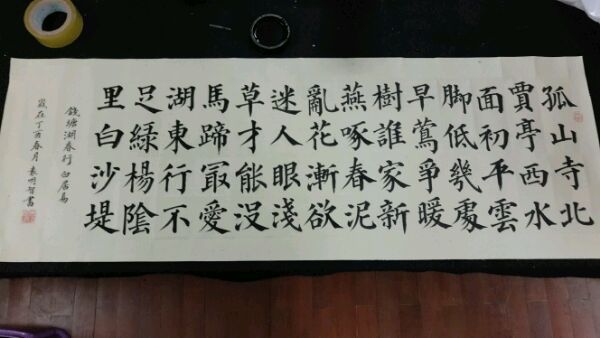 孤山寺北
賈亭西水
面初平雲
脚低幾處
早鶯爭暖
樹誰家新
燕啄春泥
亂花漸欲
迷人眼淺
草才能没
馬蹄冣愛
湖東行不
足綠楊隂
里白沙堤
錢塘湖春行 白居易
歲在丁酉春月 袁明智書